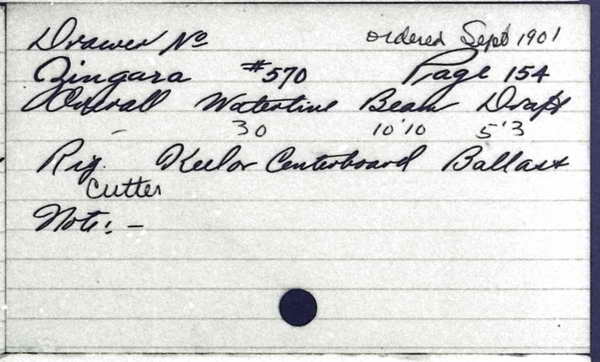 Drawer No ordered Sept 1901
Zingara #570 Page 154
Overall Waterline Beam Draft
- 30 10'10 5'3
Rig. Keel or Centerboard Ballast
Cutter
Note: -